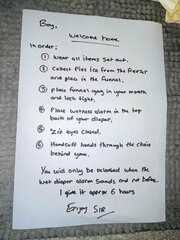 Boy,
Welcome home
In order:
① Wear all items set out.
② Collect Piss Ice from the freezer
and place in the funnel.
③ Place funnel gag in your mouth
and lock tight.
④ Place wetness alarm in the top
back of your diaper.
⑤ Zip eyes closed.
⑥ Handcuff hands through the chair
behind you.
You will only be released when the
wet diaper alarm sounds and not before.
I give it approx 6 hours
Enjoy Sir